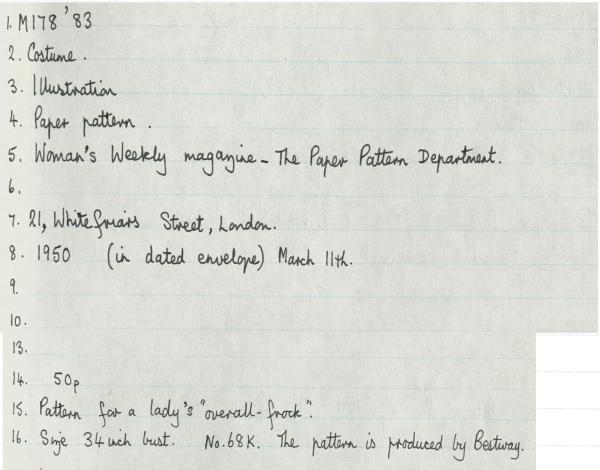 1. M178 '83
2. Costume.
3. Illustration
4. Paper pattern.
5. Woman's Weekly magazine - The Paper Pattern Department.
6.
7. 21, Whitefriars Street, London.
8. 1950 (in dated envelope) March 11th.
9.
10.
13.
14. 50p
15. Pattern for a lady's "overall-frock".
16. Size 34 inch bust. No. 68K. The pattern is produced by Bestway.